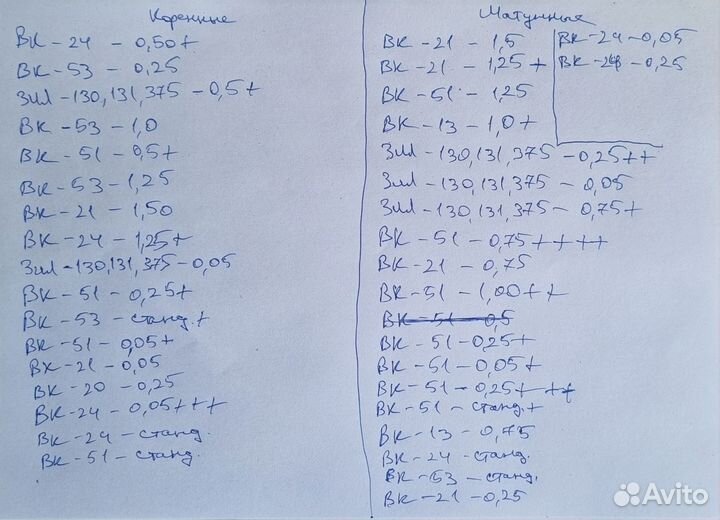 Коренные
ВК-24 - 0,50+
ВК-53 - 0,25
Зил-130,131,375 - 0,5+
ВК-53 - 1,0
ВК-51 - 0,5+
ВК-53 - 1,25
ВК-21 - 1,50
ВК-24 - 1,25+
Зил-130,131,375 - 0,05
ВК-51 - 0,25+
ВК-53 - станд.+
ВК-51 - 0,05+
ВК-21 - 0,05
ВК-20 - 0,25
ВК-24 - 0,05+++
ВК-24 - станд.
ВК-51 - станд.
Шатунные
ВК-21 - 1,5
ВК-21 - 1,25+
ВК-51 - 1,25
ВК-13 - 1,0+
Зил-130,131,375 - 0,25++
Зил-130,131,375 - 0,05
Зил-130,131,375 - 0,75+
ВК-51 - 0,75++++
ВК-21 - 0,75
ВК-51 - 1,00++
ВК-51 0,5
ВК-51 - 0,25+
ВК-51 - 0,05+
ВК-51 - 0,25+++
ВК-51 - станд.+
ВК-13 - 0,75
ВК-24 - станд.
ВК-53 - станд.
ВК-21 - 0,25
ВК-24 - 0,05
ВК-24 - 0,25
Avito